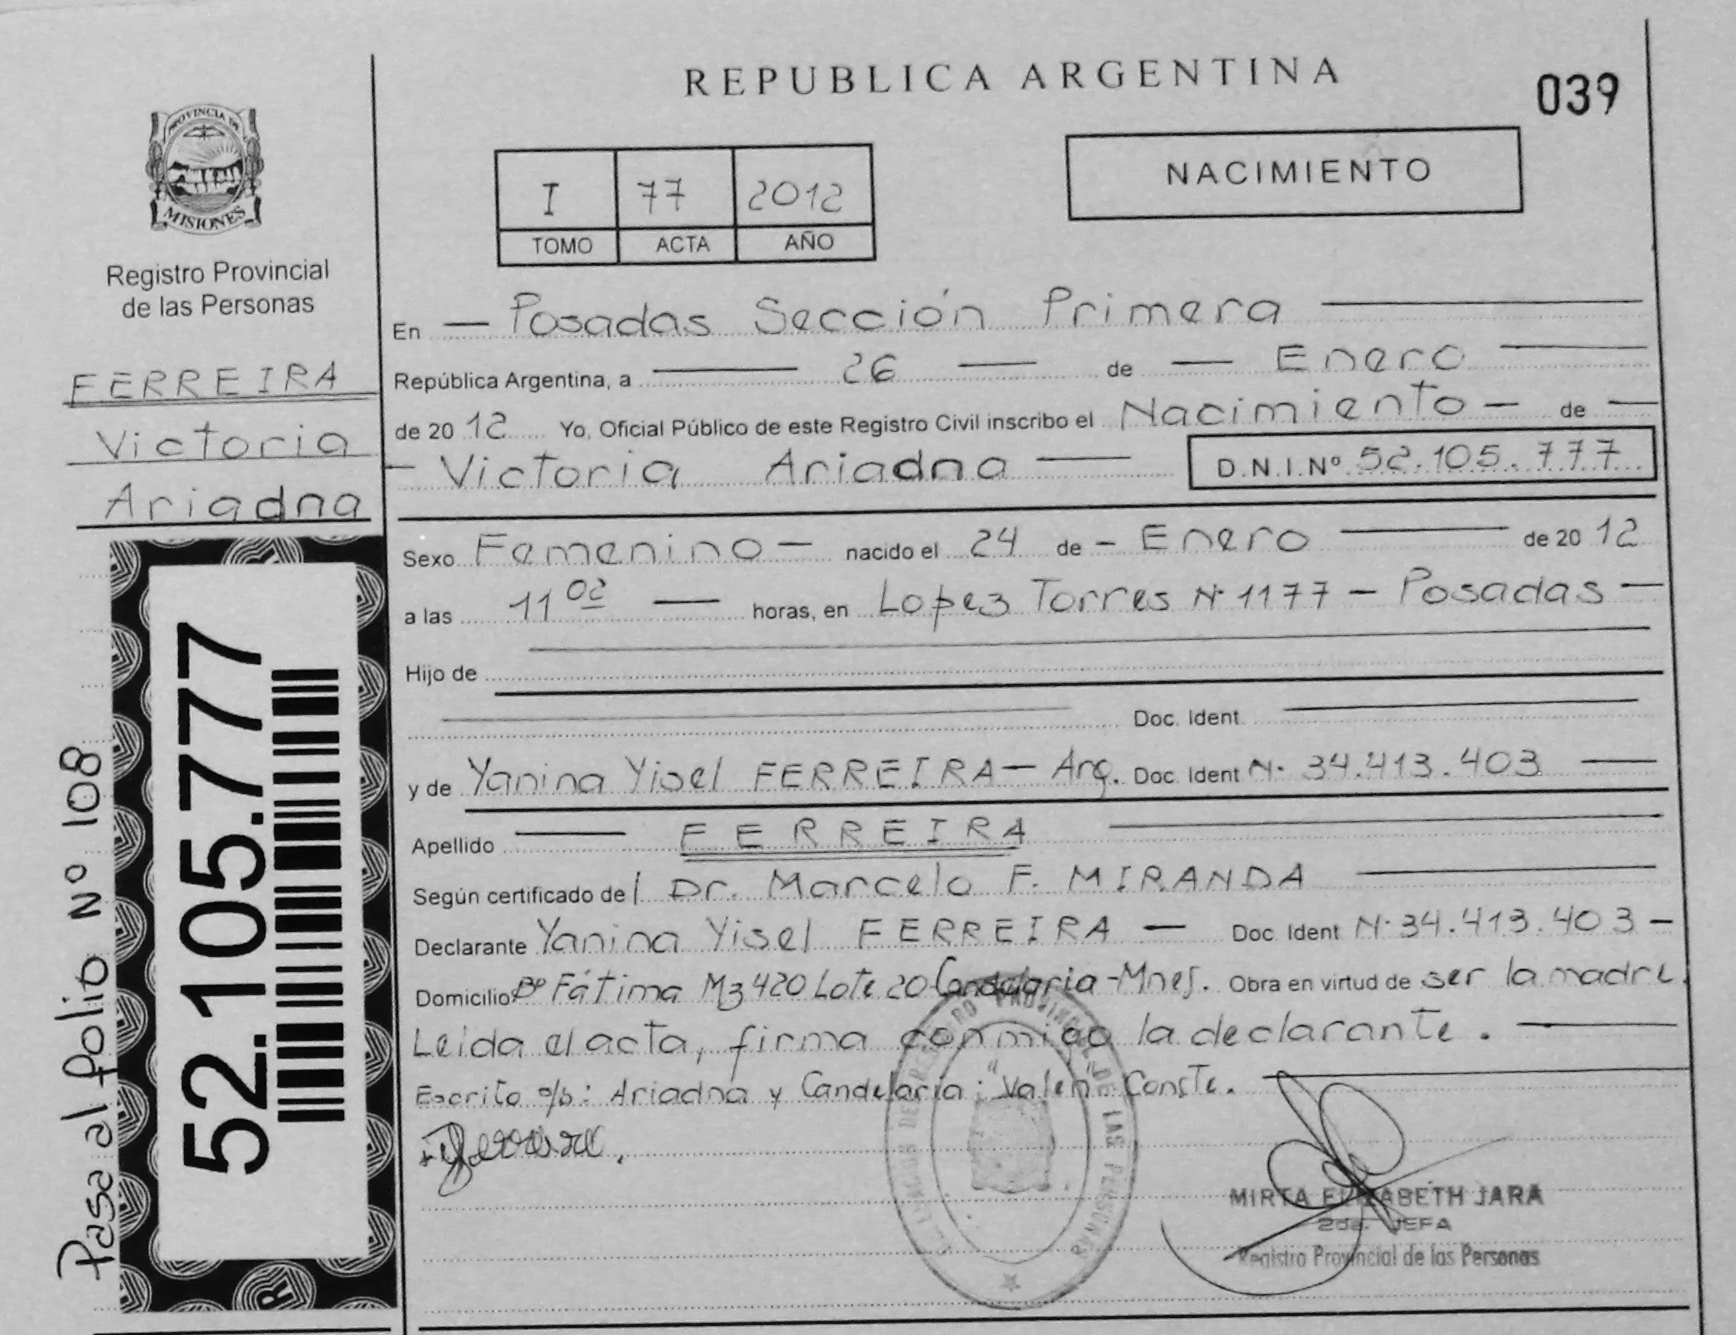 REPUBLICA ARGENTINA
039
PROVINCIA DE
MISIONES
Registro Provincial
de las Personas
FERREIRA
Victoria
Ariadna
52.105.777
Pasa al folio Nº 108
I 77 2012
TOMO ACTA AÑO
NACIMIENTO
En — Posadas Sección Primera —
República Argentina, a — 26 — de — Enero —
de 20 12 Yo, Oficial Público de este Registro Civil inscribo el Nacimiento — de —
— Victoria Ariadna — D.N.I.Nº 52.105.777
Sexo Femenino — nacido el 24 de — Enero — de 20 12
a las 11 02 — horas, en Lopez Torres Nº 1177 — Posadas —
Hijo de
Doc. Ident.
y de Yanina Yisel FERREIRA — Arg. Doc. Ident Nº 34.413.403 —
Apellido — FERREIRA —
Según certificado del Dr. Marcelo F. MIRANDA —
Declarante Yanina Yisel FERREIRA — Doc. Ident Nº 34.413.403 —
Domicilio Bº Fátima Mz 420 Lote 20 Candelaria - Mnes. Obra en virtud de ser la madre.
Leida el acta, firma conmigo la declarante. —
Escrito s/b: Ariadna y Candelaria: "Valen" Conste. —
MIRTA ELIZABETH JARA
2da. JEFA
Registro Provincial de las Personas